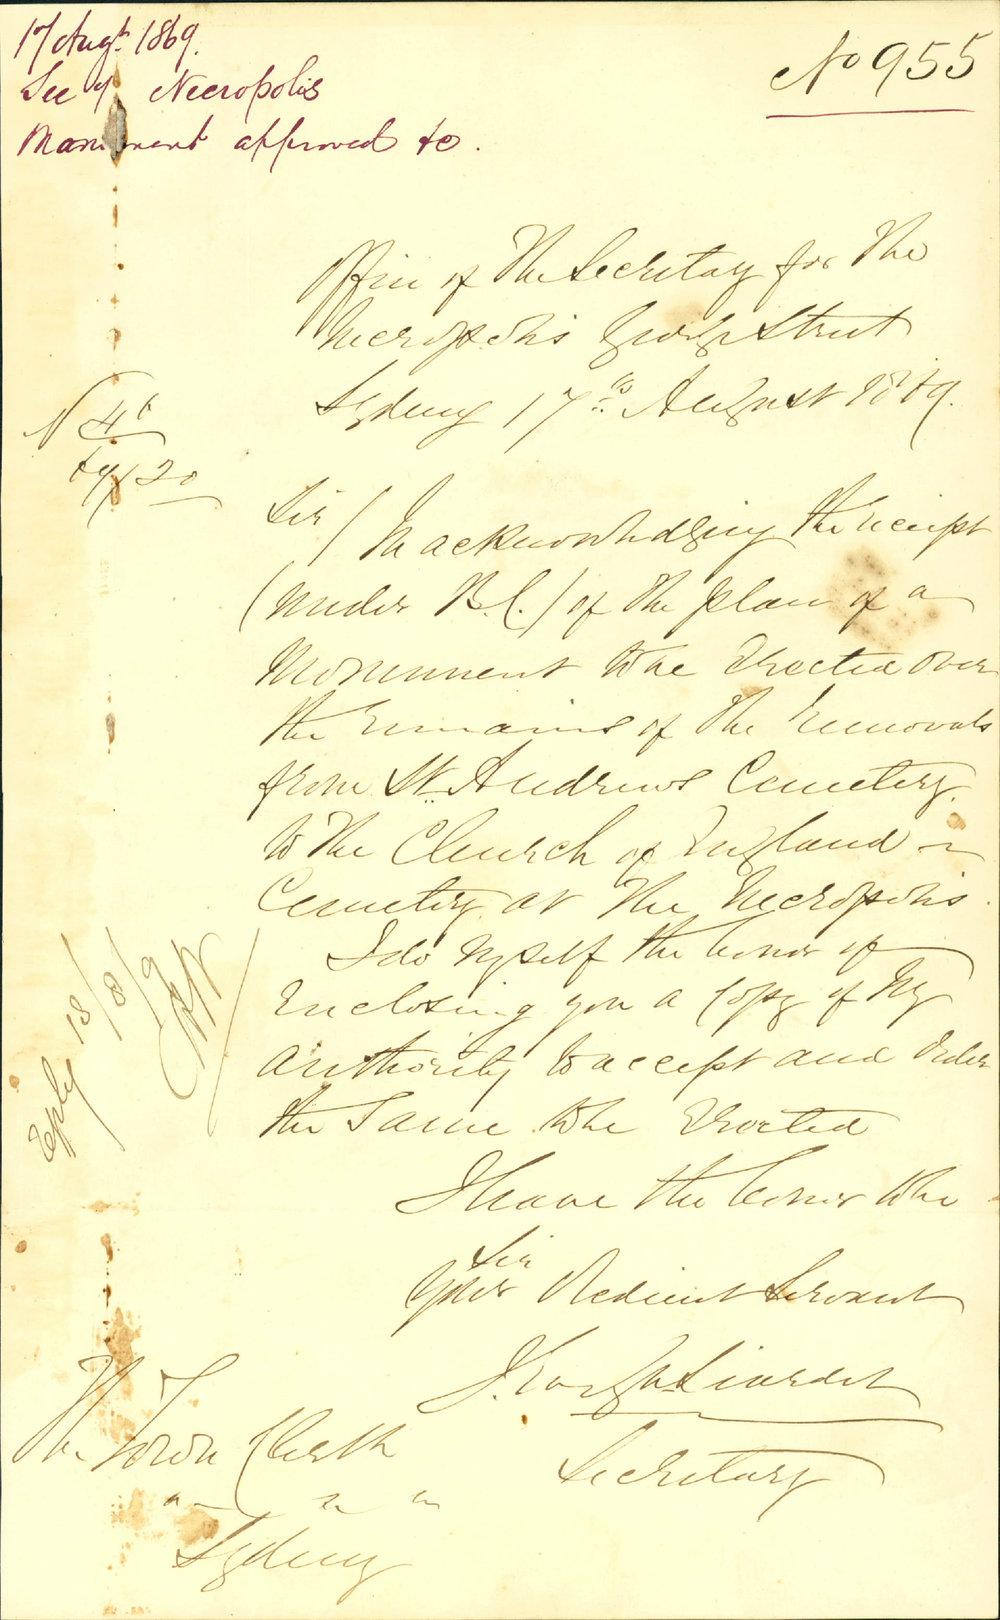 17 Augt. 1869.
Sec of Necropolis
Monument approved to.
No 955
Office of The Secretary for The
Necropolis George Street
Sydney 17th August 1869.
Sir / In acknowledging the receipt
(Under B.C.) of the plan of a
Monument to be Erected over
the remains of the removals
from St. Andrews Cemetery.
to The Church of England
Cemetery at The Necropolis.
I do myself the honor of
Enclosing you a Copy of My
Authority to accept and Order
the Same to be Erected
I have the honor to be
Sir
Your Obedient Servant
Secretary
The Town Clerk
Sydney
Reply 18/8/9